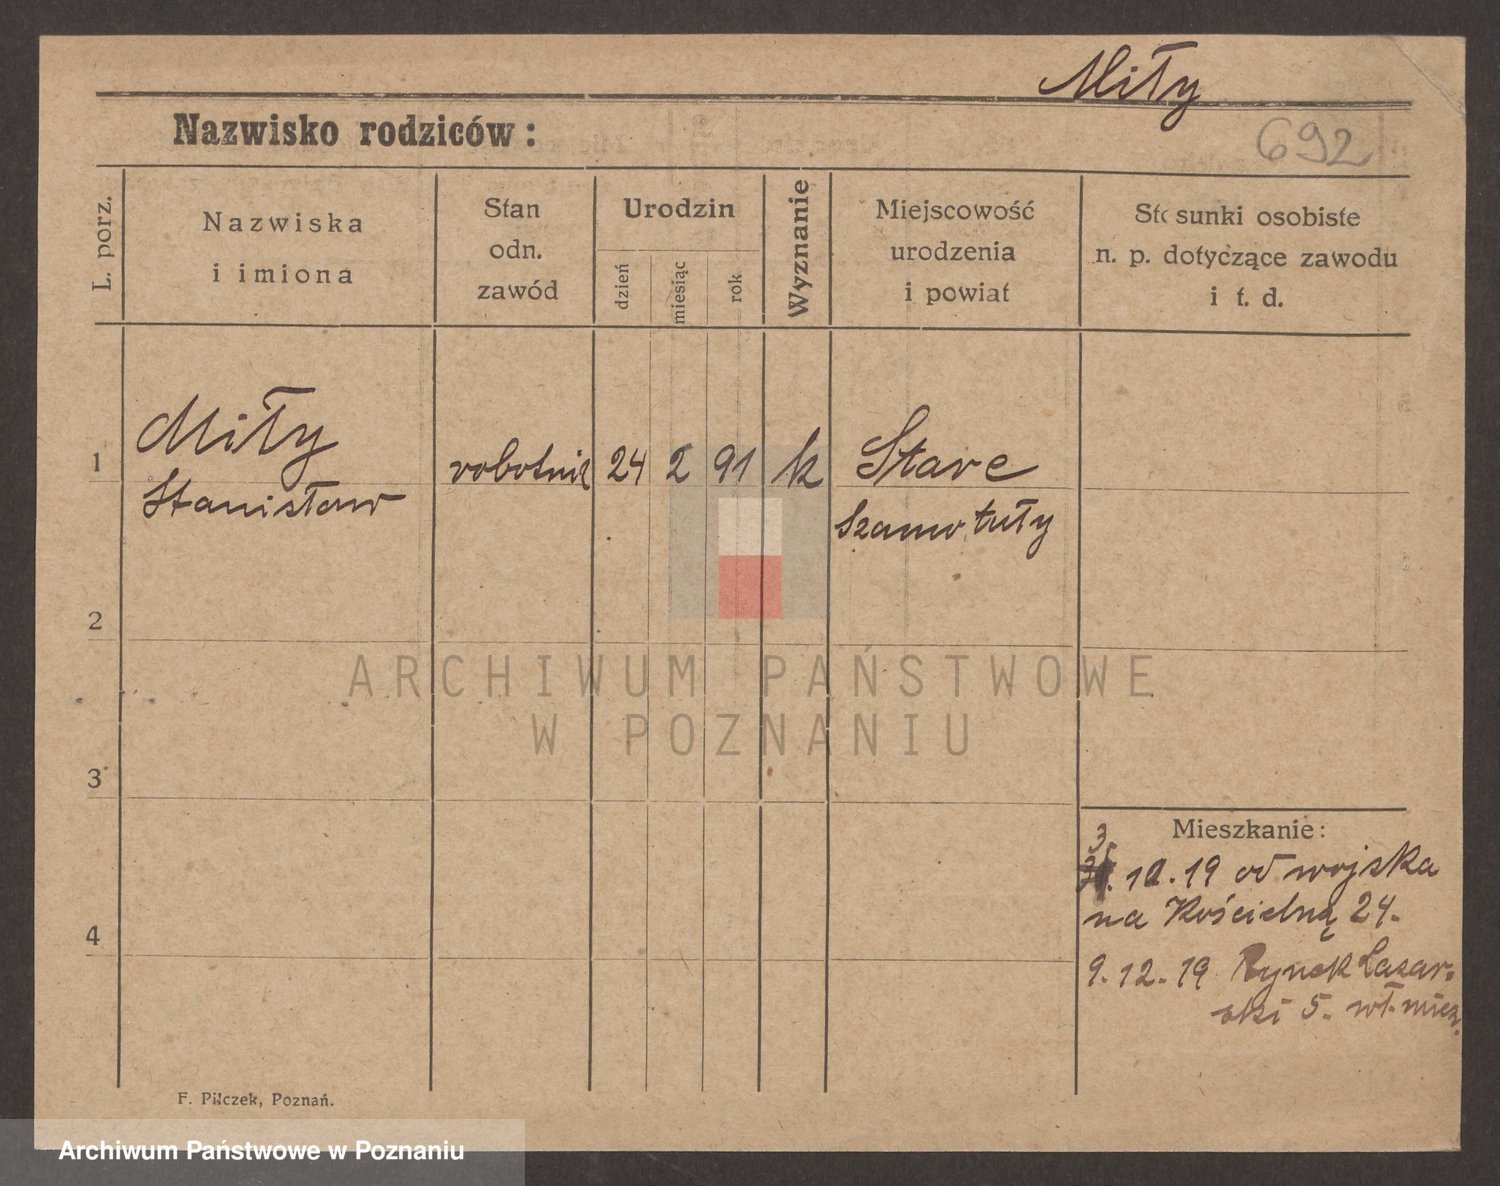 Miły
Nazwisko rodziców:
692
L. porz.
Nazwiska
i imiona
Stan
odn.
zawód
Urodzin
dzień
miesiąc
rok
Wyznanie
Miejscowość
urodzenia
i powiat
Stosunki osobiste
n. p. dotyczące zawodu
i t. d.
1
Miły
Stanisław
robotnik
24
2
91
k
Stare
Szamotuły
2
ARCHIWUM PAŃSTWOWE
W POZNANIU
3
Mieszkanie:
3.
12.19 od wojska
na Kościelną 24.
4
9.12.19 Rynek Łazar-
ski 5. wł. miesz.
F. Pilczek, Poznań.
Archiwum Państwowe w Poznaniu